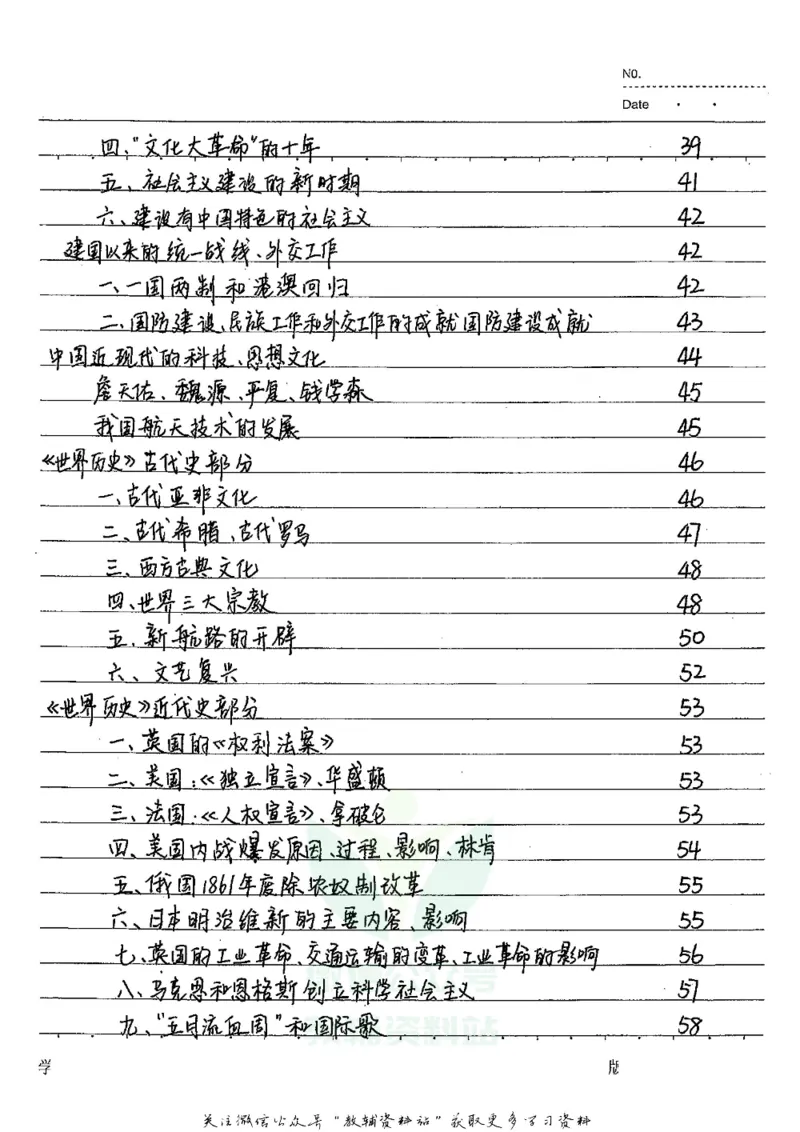 NO.
Date
四、"文化大革命"的十年 39
五、社会主义建设的新时期 41
六、建设有中国特色的社会主义 42
建国以来的统一战线、外交工作 42
一、一国两制和港澳回归 42
二、国防建设、民族工作和外交工作的成就国防建设成就 43
中国近现代的科技、思想文化 44
詹天佑、魏源、严复、钱学森 45
我国航天技术的发展 45
《世界历史》古代史部分 46
一、古代亚非文化 46
二、古代希腊、古代罗马 47
三、西方古典文化 48
四、世界三大宗教 48
五、新航路的开辟 50
六、文艺复兴 52
《世界历史》近代史部分 53
一、英国的《权利法案》 53
二、美国：《独立宣言》、华盛顿 53
三、法国：《人权宣言》、拿破仑 53
四、美国内战爆发原因、过程、影响、林肯 54
五、俄国1861年废除农奴制改革 55
六、日本明治维新的主要内容、影响 55
七、英国的工业革命、交通运输的变革、工业革命的影响 56
八、马克思和恩格斯创立科学社会主义 57
九、"五月流血周"和国际歌 58
学 版
关注微信公众号"教辅资料站"获取更多学习资料